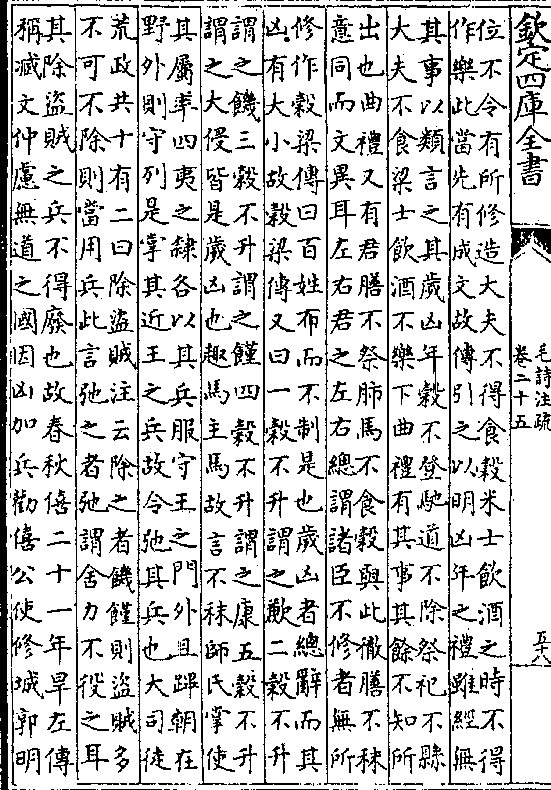 欽定四庫全書
毛詩注疏
卷二十五
五十八
位不令有所修造大夫不得食穀米士飲酒之時不得
作樂此當先有成文故傳引之以明凶年之禮雖經無
其事以類言之其歲凶年穀不登馳道不除祭祀不縣
大夫不食梁士飲酒不樂下曲禮有其事其餘不知所
出也曲禮又有君膳不祭肺馬不食穀與此徹膳不秣
意同而文異耳左右君之左右總謂諸臣不修者無所
修作穀梁傳曰百姓布而不制是也歲凶者總辭而其
凶有大小故穀梁傳又曰一穀不升謂之歉二穀不升
謂之饑三穀不升謂之饉四穀不升謂之康五穀不升
謂之大侵皆是歲凶也趣馬主馬故言不秣師氏掌使
其屬率四夷之隸各以其兵服守王之門外且蹕朝在
野外則守列是掌其近王之兵故令弛其兵也大司徒
荒政共十有二曰除盜賊注云除之者饑饉則盜賊多
不可不除則當用兵此言弛之者弛謂舍力不役之耳
其除盜賊之兵不得廢也故春秋僖二十一年旱左傳
稱臧文仲慮無道之國因凶加兵勸僖公使修城郭明